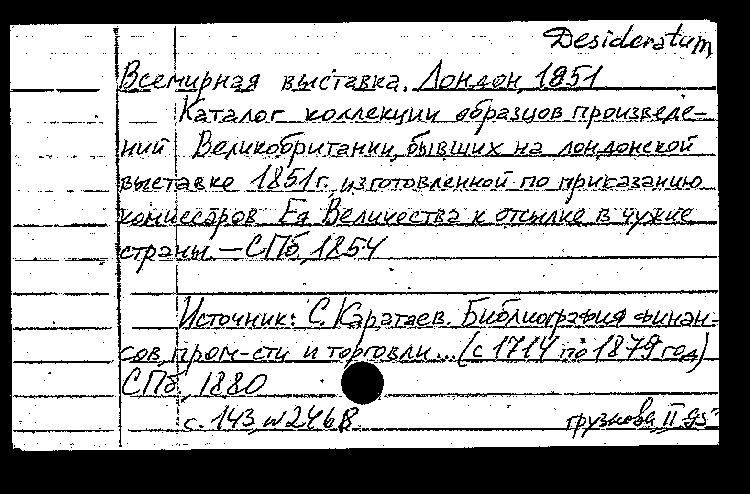 Desideratum
Всемирная выставка. Лондон, 1851
Каталог коллекции образцов произведе-
ний Великобритании, бывших на лондонской
выставке 1851 г. изготовленной по приказанию
комиссаров Ея Величества к отсылке в чужие
страны. — СПб, 1854
Источник: С. Каратаев. Библиография финан-
сов, пром-сти и торговли... (с 1714 по 1879 год)
СПб, 1880
с. 143, №2468
грузнова II